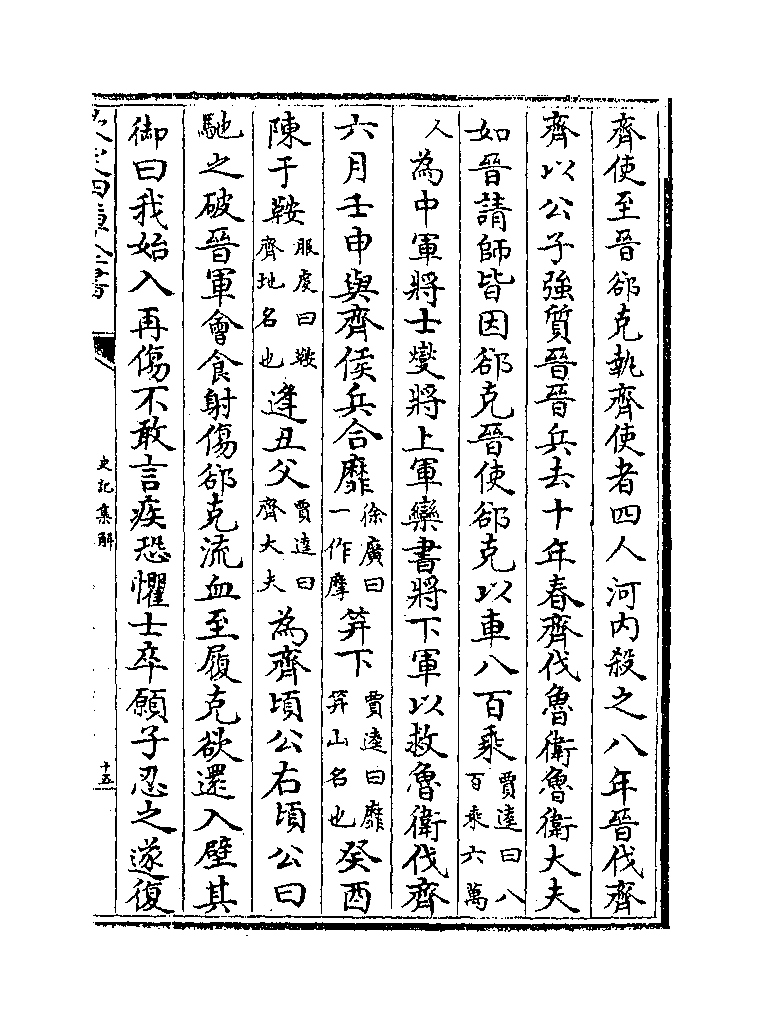 齊使至晉郤克執齊使者四人河内殺之八年晉伐齊
齊以公子強質晉晉兵去十年春齊伐魯衛魯衛大夫
如晉請師皆因郤克晉使郤克以車八百乘賈逵曰八百乘六萬
人為中軍將士燮將上軍欒書將下軍以救魯衛伐齊
六月壬申與齊侯兵合靡徐廣曰一作摩筓下賈逵曰靡筓山名也癸酉
陳于鞍服虔曰鞍齊地名也逄丑父賈逵曰齊大夫為齊頃公右頃公曰
馳之破晉軍會食射傷郤克流血至履克欲還入壁其
御曰我始入再傷不敢言疾恐懼士卒願子忍之遂復
史記集解
十五